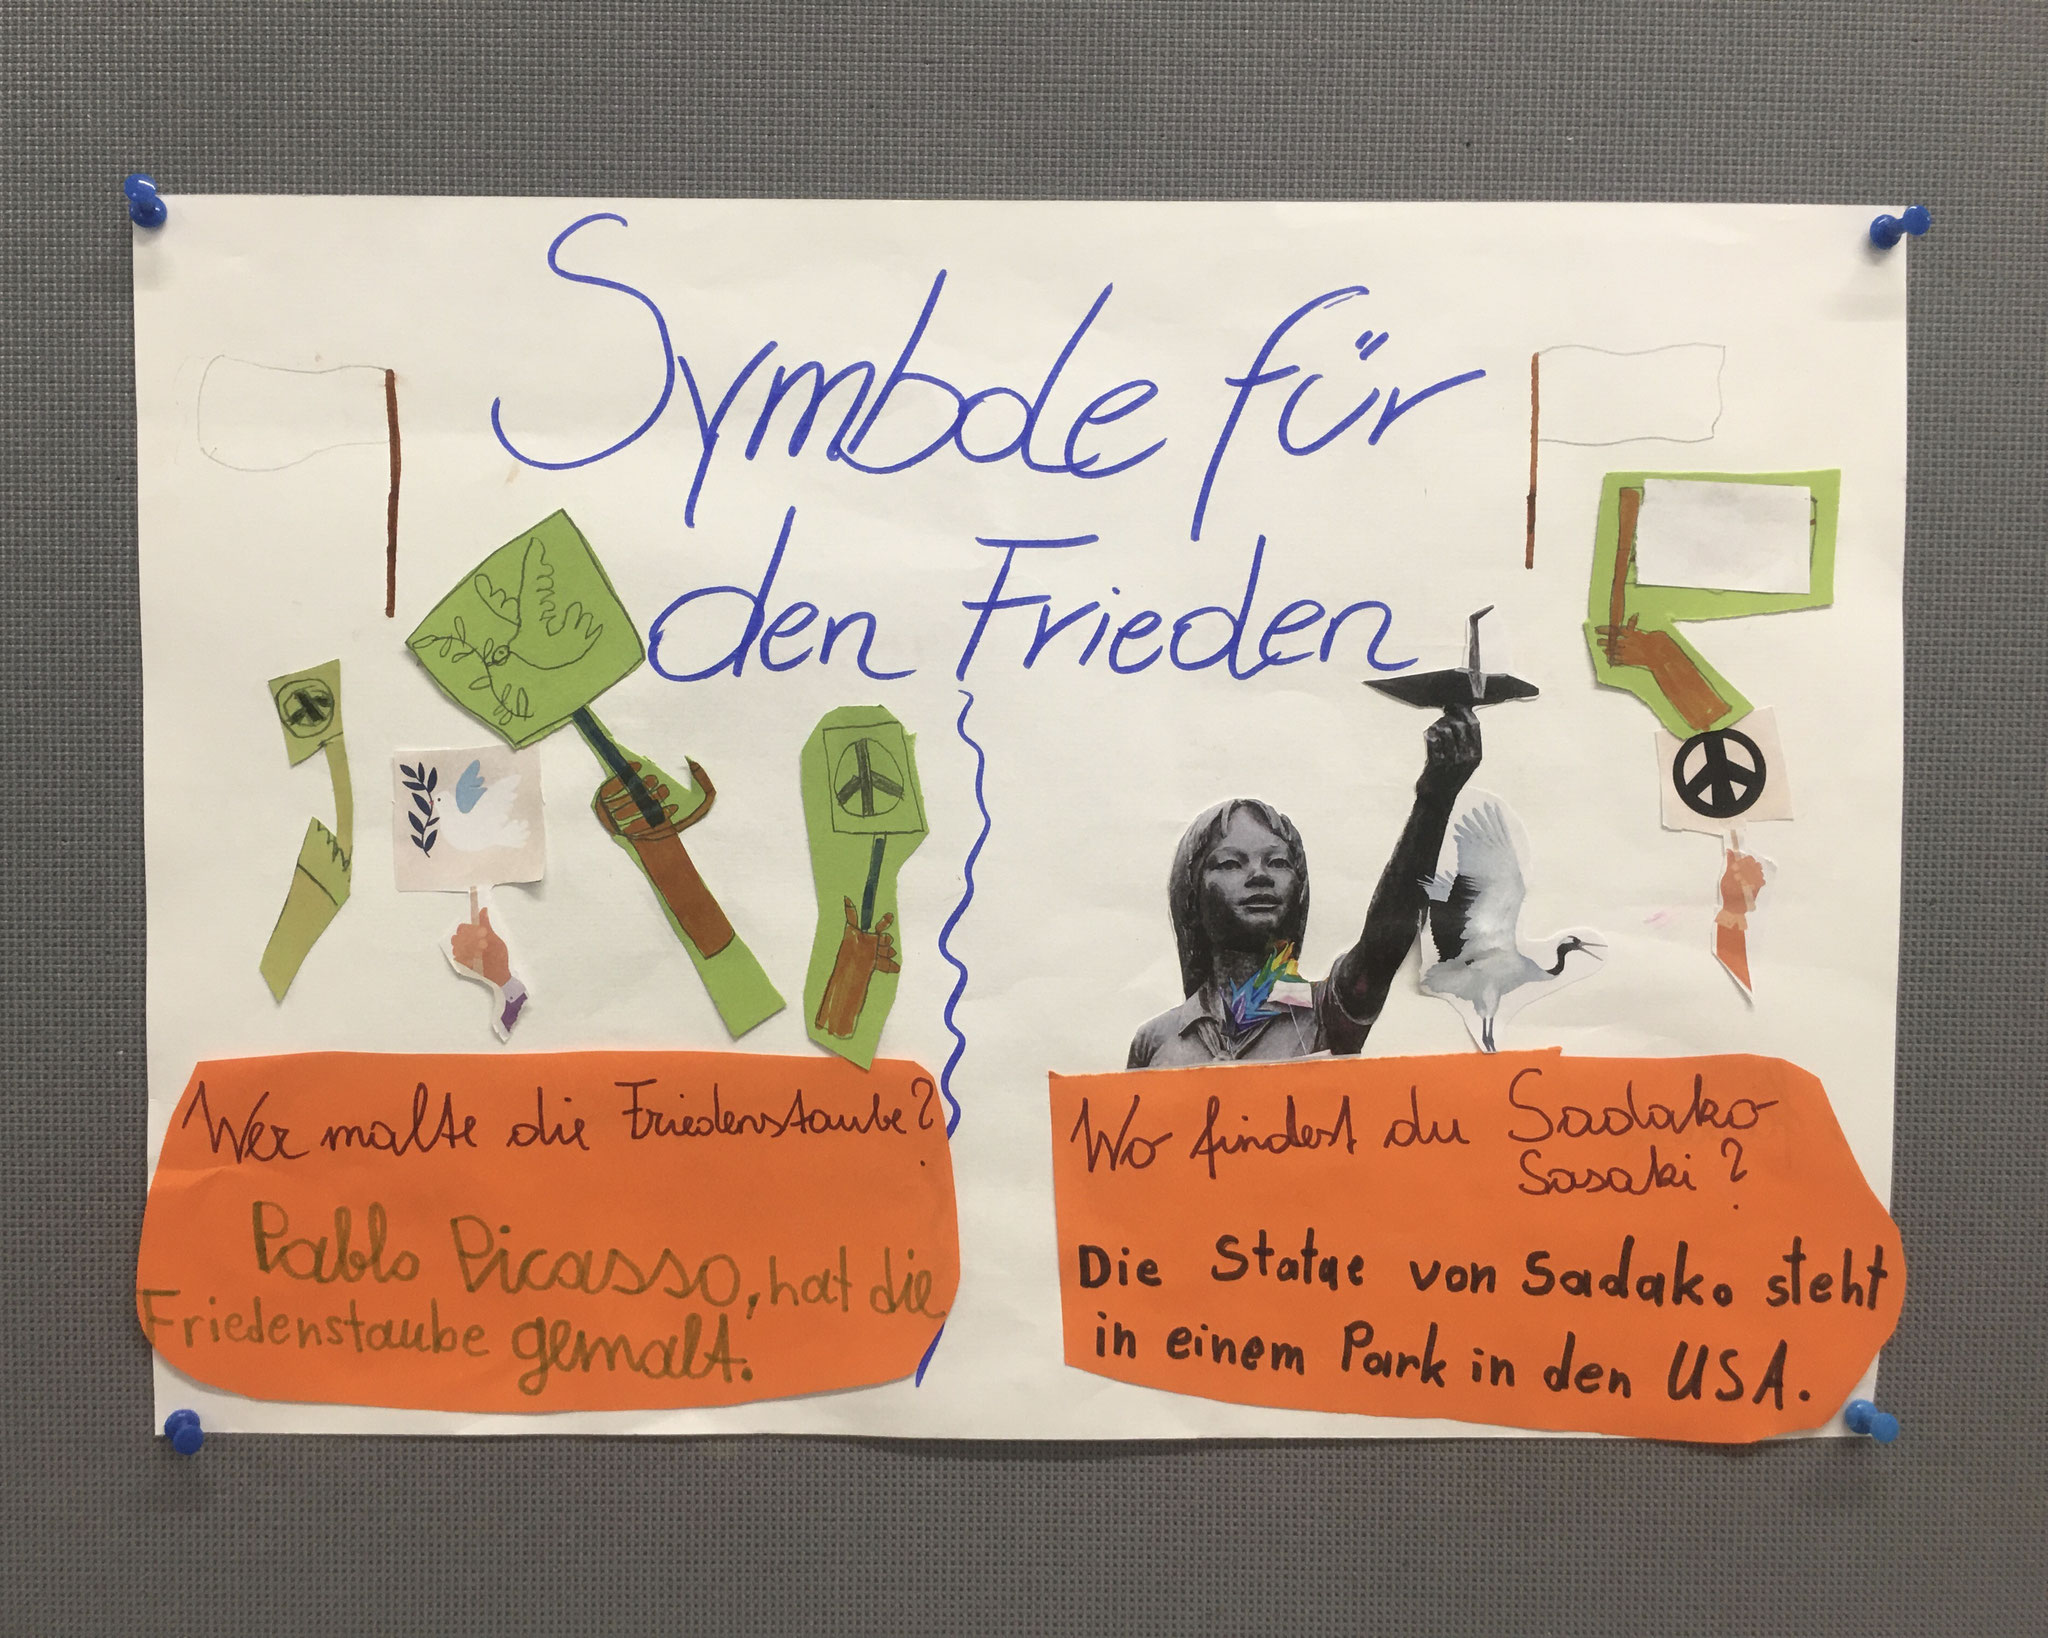 Symbole für
den Frieden
Wer malte die Friedenstaube?
Pablo Picasso, hat die
Friedenstaube gemalt.
Wo findest du Sadako
Sasaki?
Die Statue von Sadako steht
in einem Park in den USA.